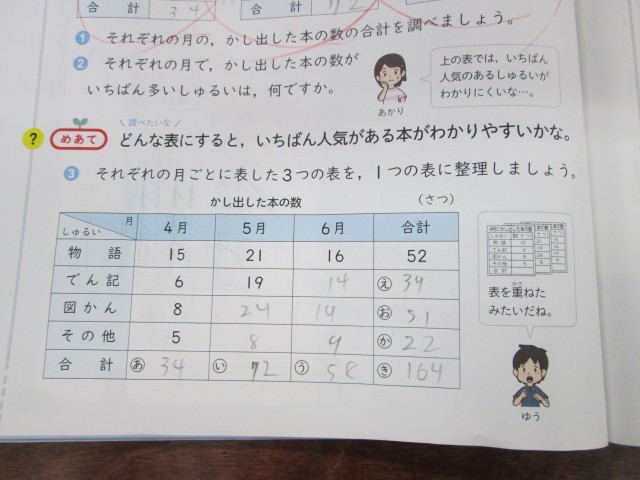 合計 34 合計 72
1 それぞれの月の，かし出した本の数の合計を調べましょう。
2 それぞれの月で，かし出した本の数が
いちばん多いしゅるいは，何ですか。
あかり
上の表では，いちばん
人気のあるしゅるいが
わかりにくいな…。
調べたいな
? めあて どんな表にすると，いちばん人気がある本がわかりやすいかな。
3 それぞれの月ごとに表した3つの表を，1つの表に整理しましょう。
かし出した本の数 (さつ)
しゅるい 月 4月 5月 6月 合計
物語 15 21 16 52
でん記 6 19 14 え 39
図かん 8 24 19 お 51
その他 5 8 9 か 22
合計 あ 34 い 72 う 58 き 164
表を重ねた
かさ
みたいだね。
ゆう